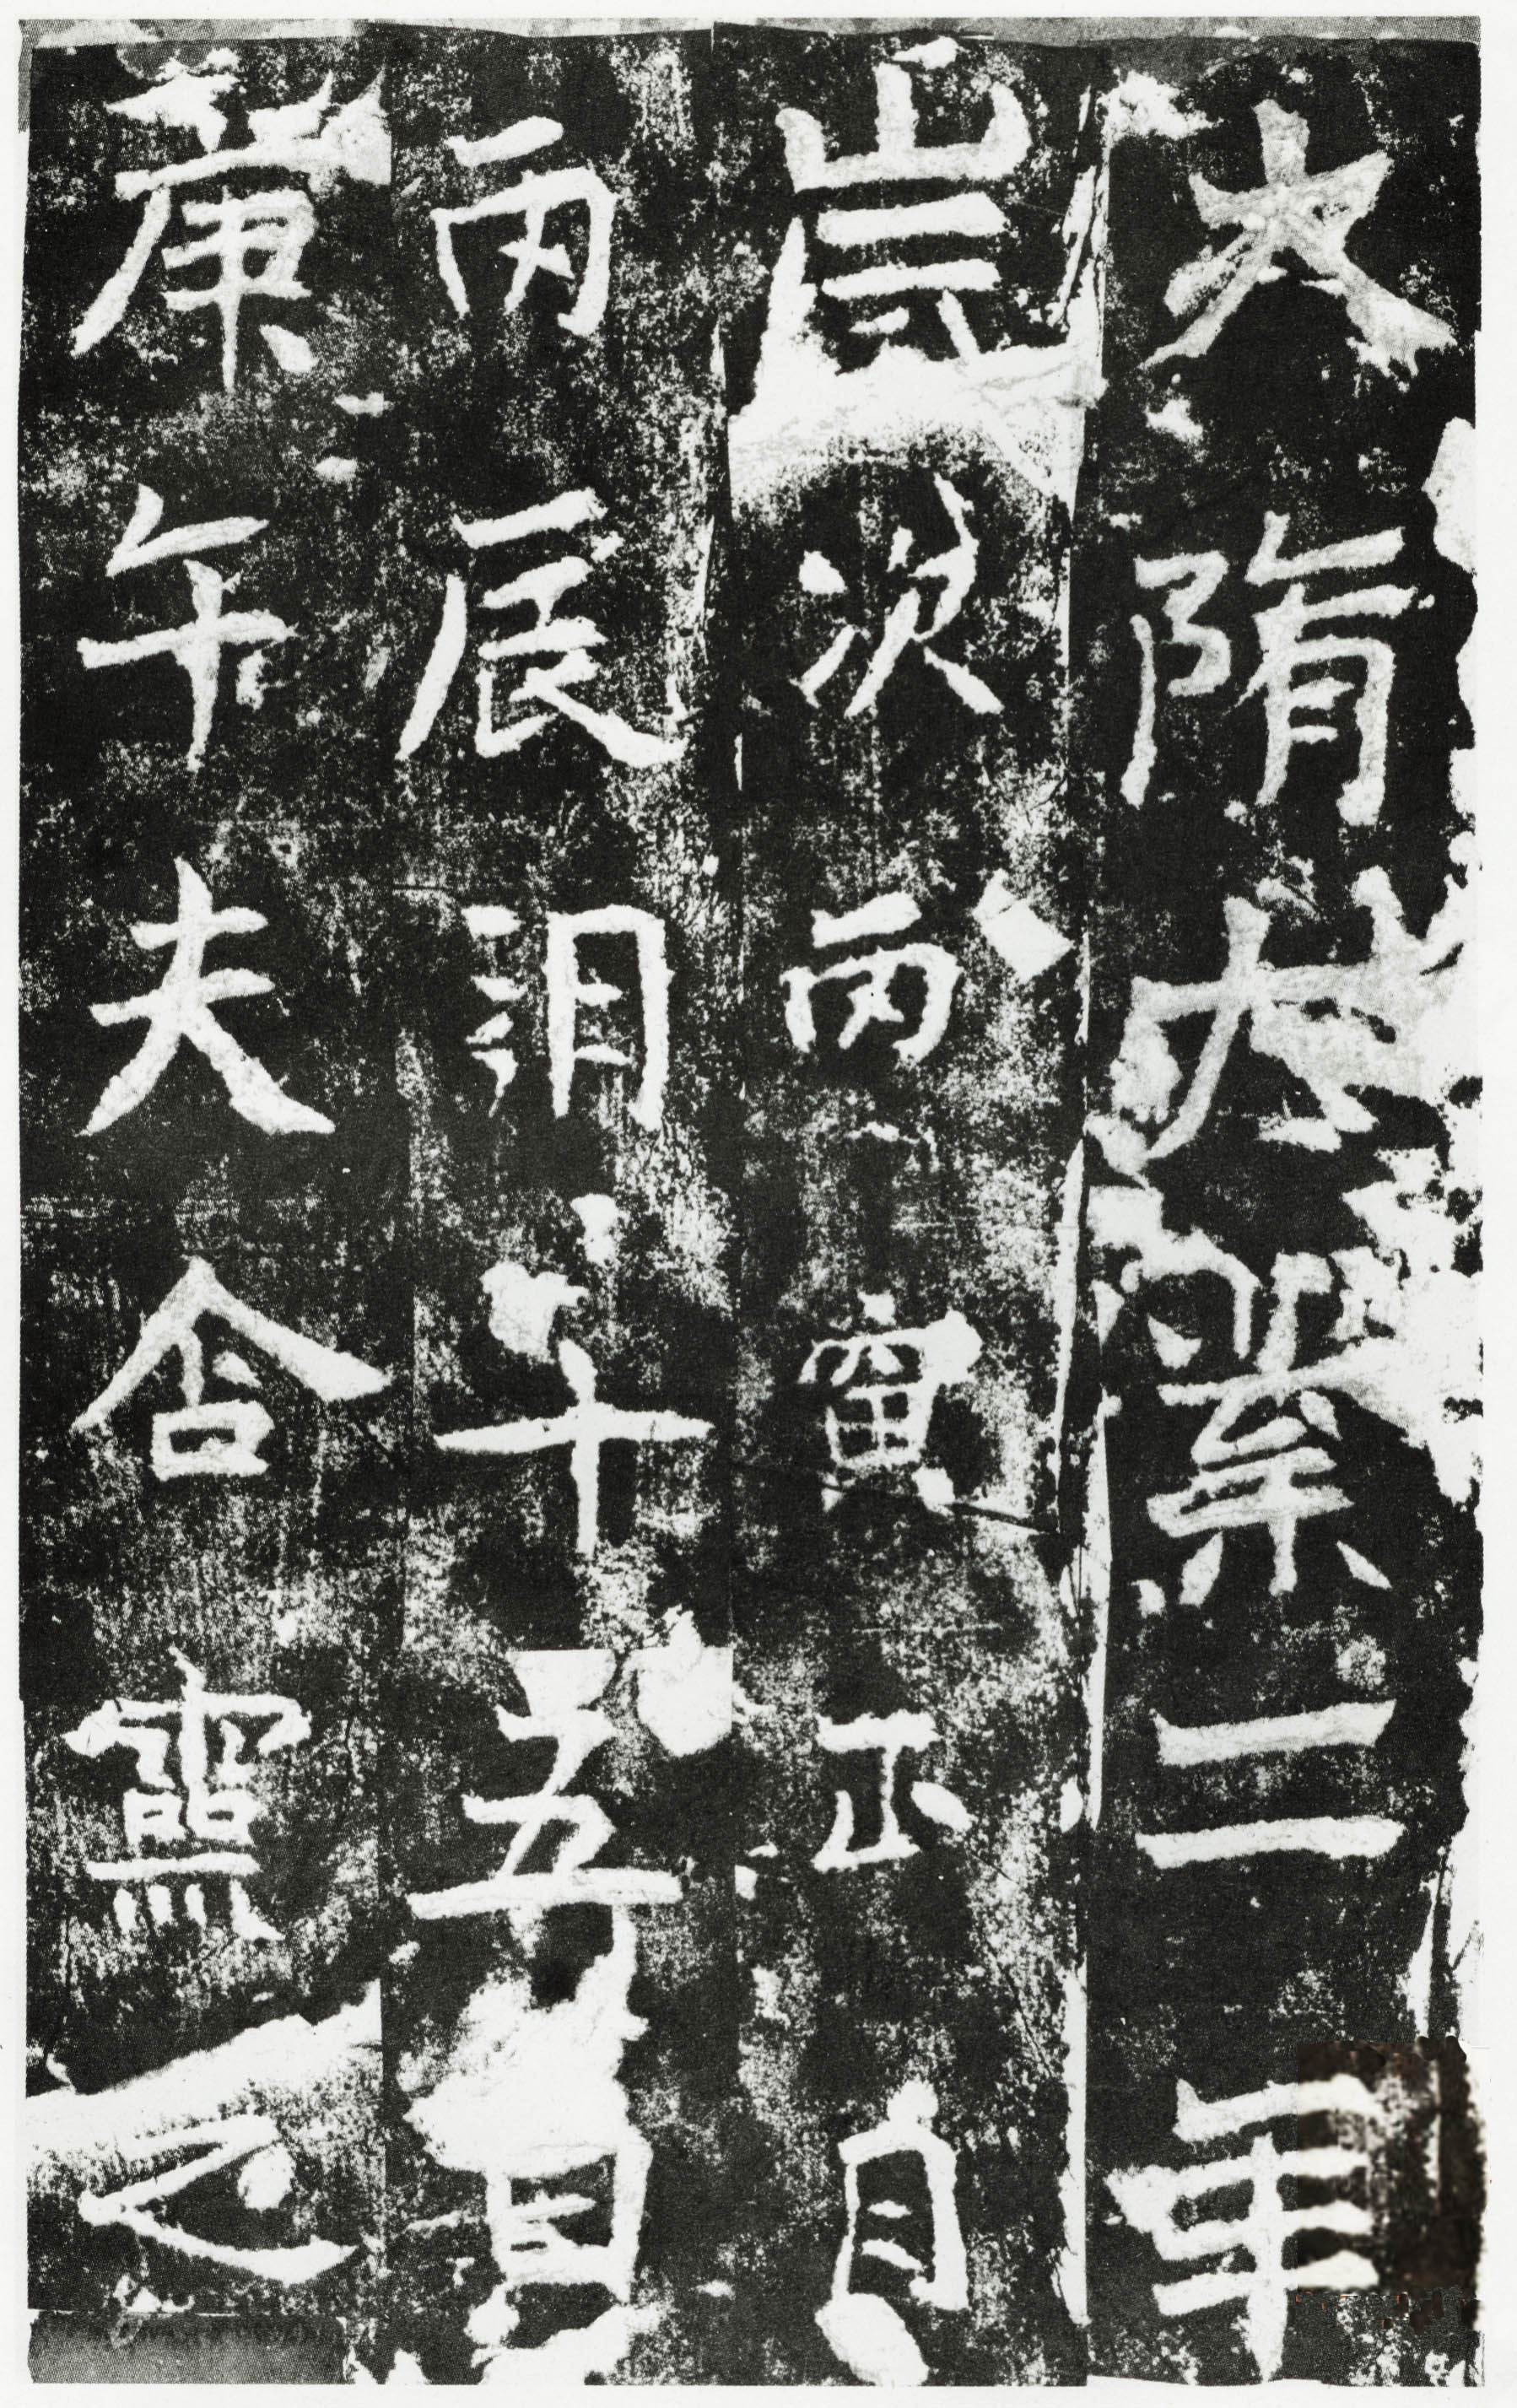 大隋大業二年
歲次丙寅正月
丙辰朔十五日
庚午夫含靈之